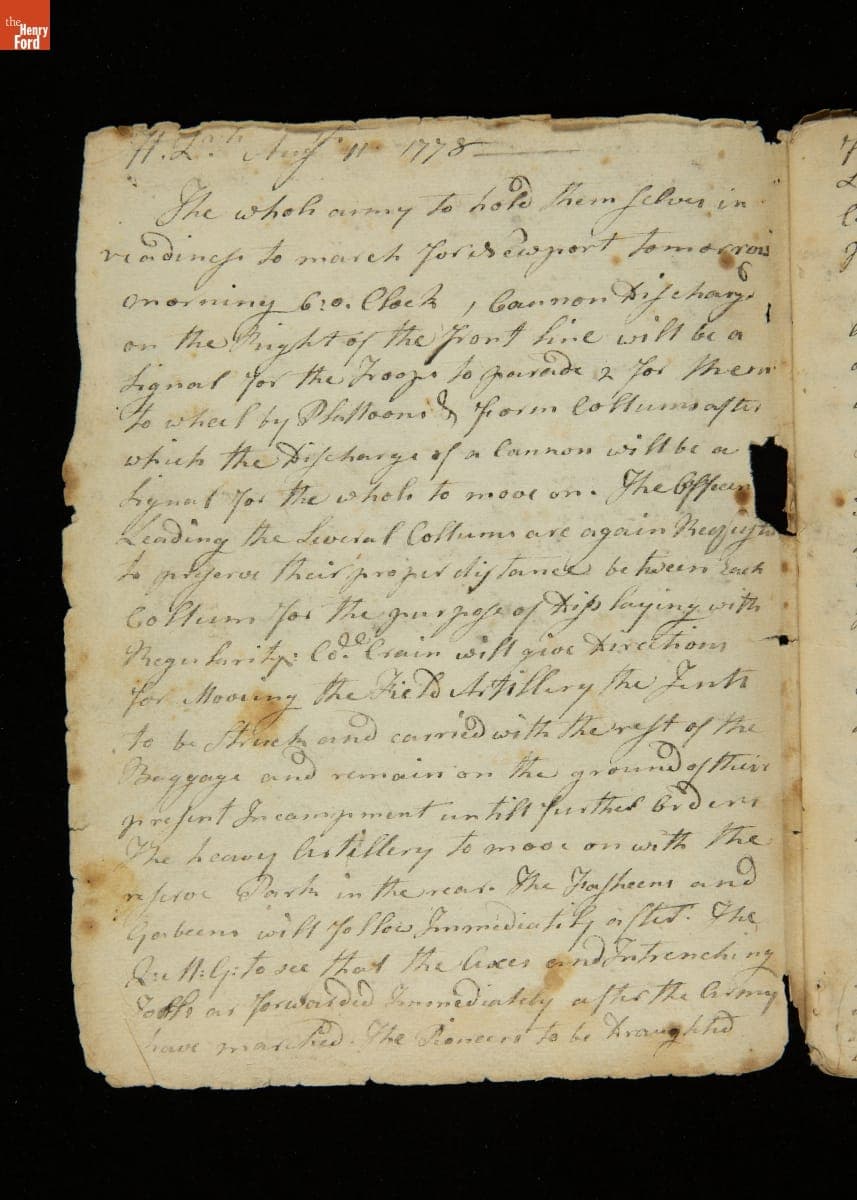 the
Henry
Ford
H. Qrs Augt 11 1778
The whole army to hold them selves in
readiness to march for Newport tomorrow
morning 6: o. Clock , Cannon Discharg'd
on the Right of the front line will be a
Signal for the Troops to parade & for them
to wheel by Plattoons & form Collums after
which the Discharge of a Cannon will be a
Signal for the whole to move on. The Officers
Leading the Several Collums are again Requested
to preserve their proper distance between Each
Collum for the purpose of Displaying with
Regularity: Crain will give Directions
for Mooving the Field Artillery the Tents
to be Struck and carried with the rest of the
Baggage and remain on the ground of their
present Incampment untill further Orders
The heavy Artillery to move on with the
reserve Park in the rear. The Fasheens and
Gabeens will follow Immediately after. The
Q: M: G: to see that the Axes and Intrenching
Tools are forwarded Immediately after the Army
have marched. The Pioneers to be Draughted